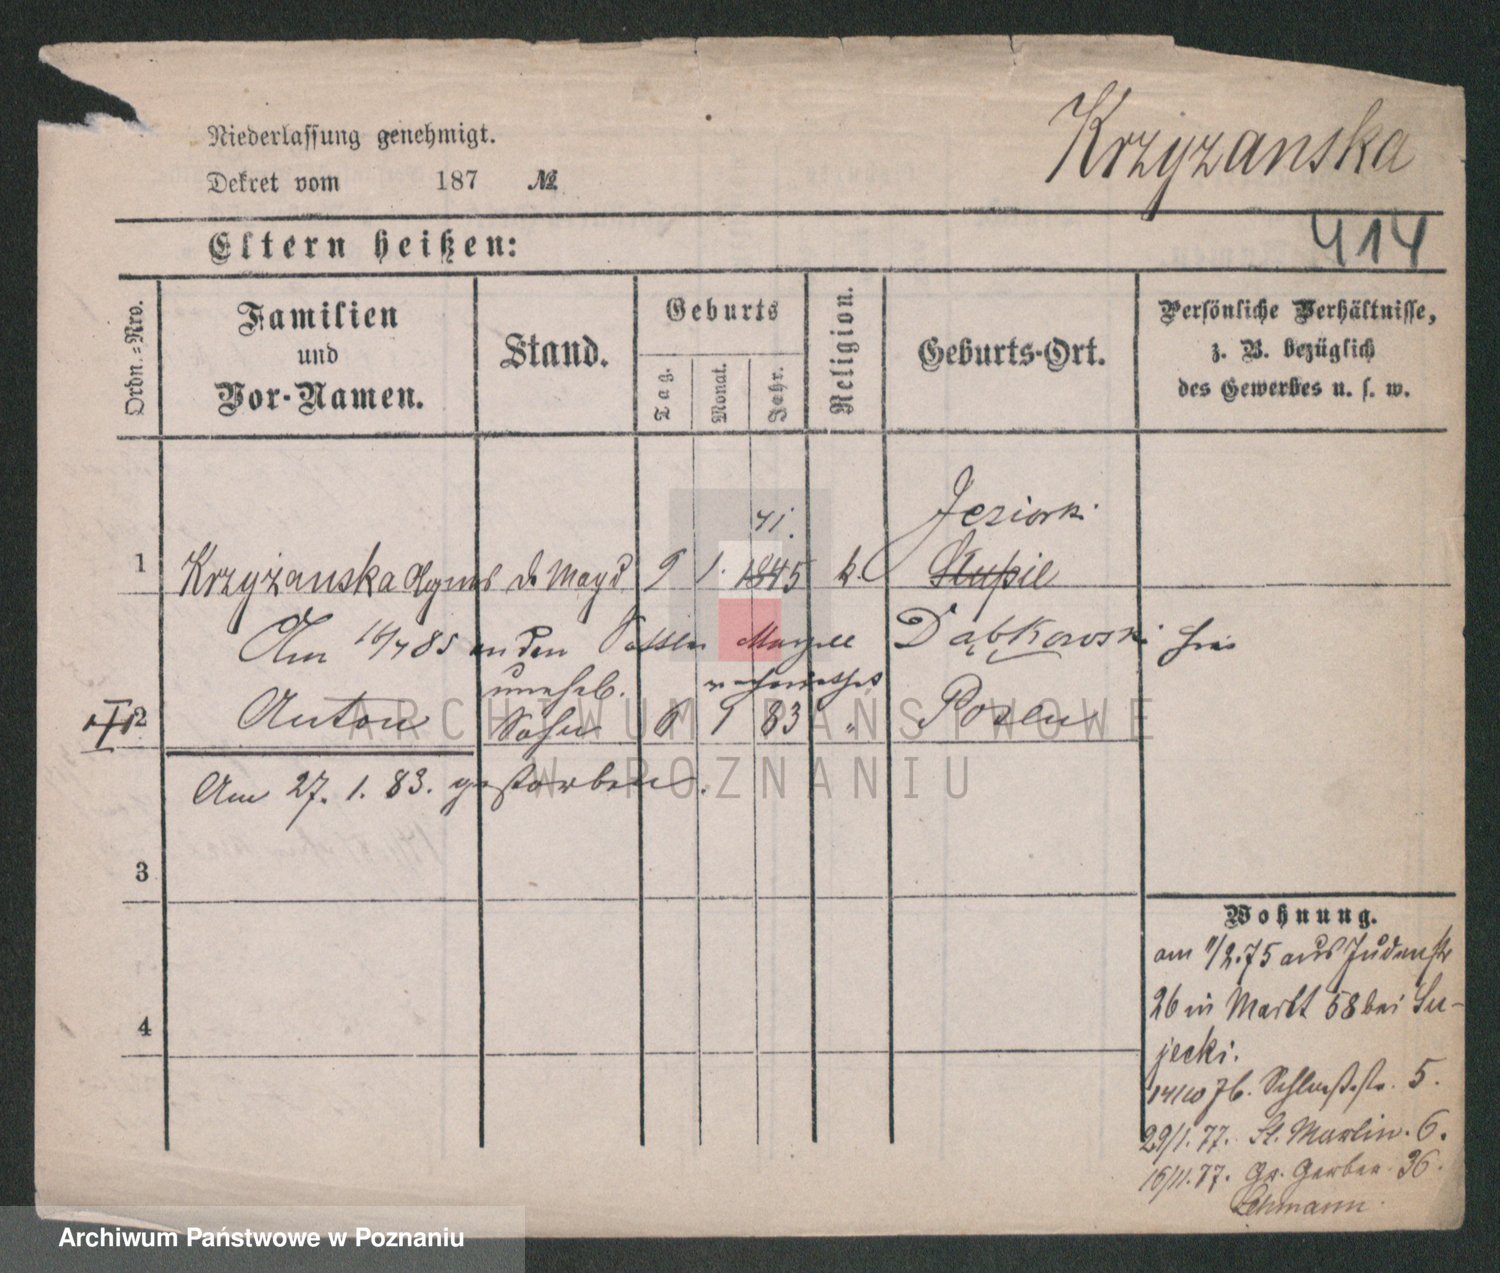 Krzyżanska
Niederlassung genehmigt.
Dekret vom 187 №
Eltern heißen:
414
Ordn.=Nro.
Familien
und
Vor-Namen.
Stand.
Geburts
Tag.
Monat.
Jahr.
Religion.
Geburts-Ort.
Persönliche Verhältnisse,
z. B. bezüglich
des Gewerbes u. s. w.
Jeziorki
41.
1 Krzyżanska Agnes d. Magd 9 1. 1845 k. Stupie
Am 16/4 85 an den Marzell Dąbkowski hier
unehel. verheirathet
2 Anton Sohn 6 1 83 " Posen
Am 27. 1. 83. gestorben.
3
4
Wohnung.
am 1/2.75 aus Judenstr
26 in Markt 58 bei Su-
jecki.
14/10 76. Schlossstr. 5.
29/1. 77. St. Martin. 6.
16/11. 77. Gr. Gerber. 36.
Lehmann.
ARCHIWUM PAŃSTWOWE
W POZNANIU
Archiwum Państwowe w Poznaniu